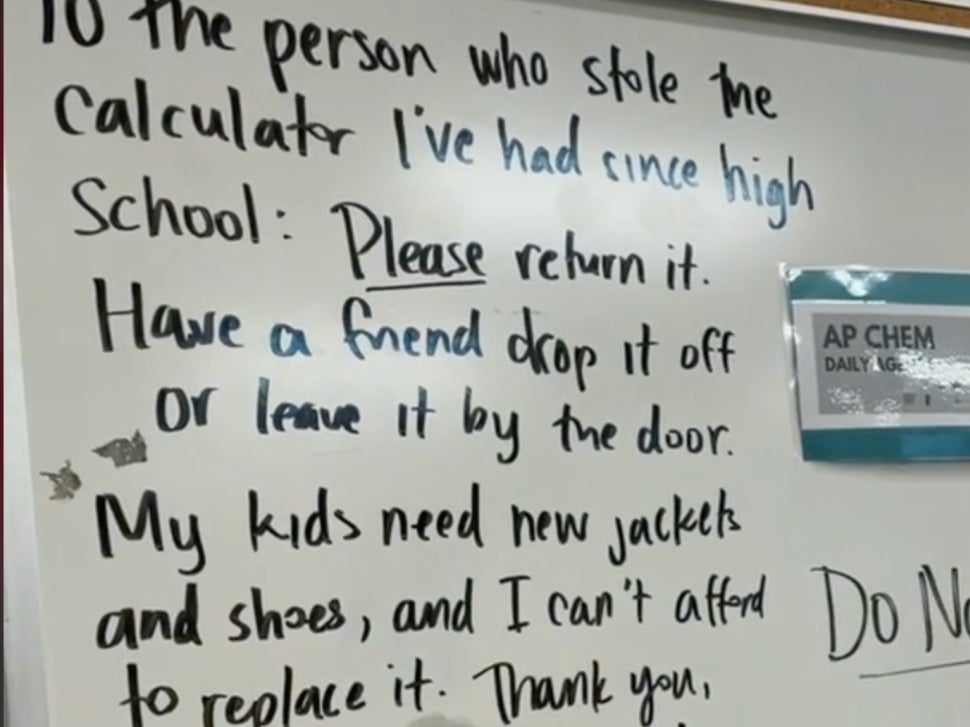 To the person who stole the
calculator I've had since high
School: Please return it.
Have a friend drop it off
or leave it by the door.
My kids need new jackets
and shoes, and I can't afford
to replace it. Thank you,
AP CHEM
DAILY
Do